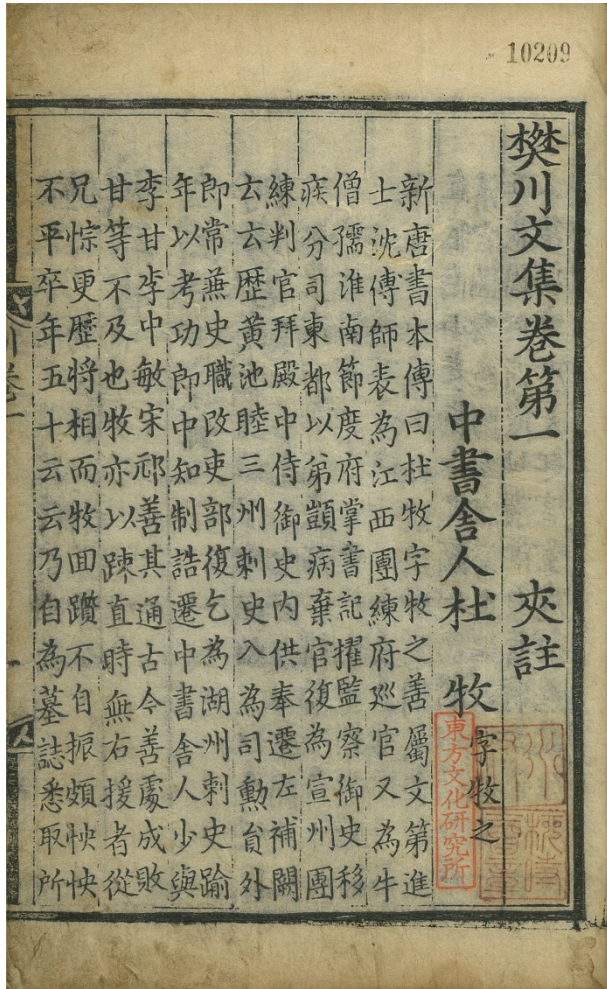 10209
樊川文集卷第一　夾註
中書舍人杜　牧字牧之
新唐書本傳曰杜牧字牧之善屬文第進
士沈傳師表為江西團練府巡官又為牛
僧孺淮南節度府掌書記擢監察御史移
疾分司東都以弟顗病棄官復為宣州團
練判官拜殿中侍御史內供奉遷左補闕
去去歷黃池睦三州刺史入為司勳員外
郎常兼史職改吏部復乞為湖州刺史踰
年以考功郎中知制誥遷中書舍人少與
李甘李中敏宋祁善其通古今善處成敗
甘等不及也牧亦以踈直時無右援者從
兄悰更歷將相而牧回躓不自振頗怏怏
不平卒年五十云云乃自為墓誌悉取所
東方文化研究所
川卷一